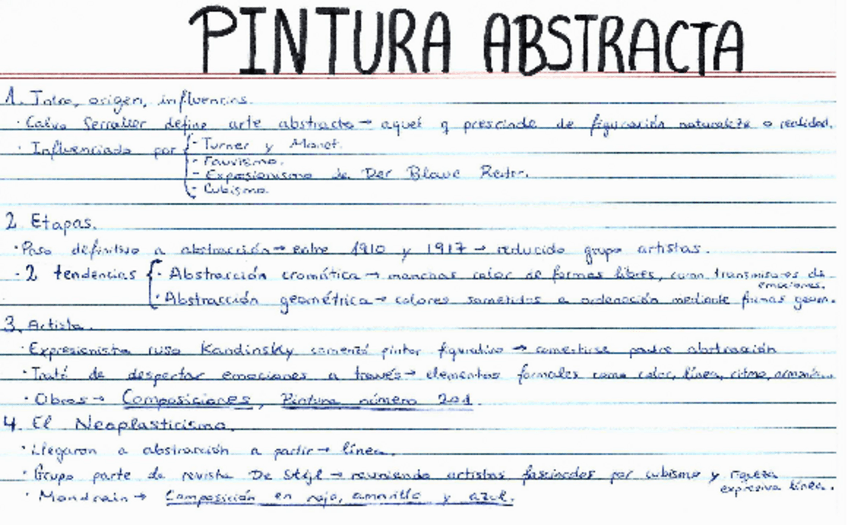 PINTURA ABSTRACTA
1. Intro, origen, influencias.
· Calvo Serraller define arte abstracto → aquel q prescinde de figuración naturaleza o realidad.
· Influenciado por { - Turner y Monet.
- Fauvismo.
- Expresionismo de Der Blaue Reiter.
- Cubismo.
2. Etapas.
· Paso definitivo a abstracción → entre 1910 y 1917 → reducido grupo artistas.
· 2 tendencias { · Abstracción cromática → manchas color de formas libres, transmisores de
emociones.
· Abstracción geométrica → colores sometidos a ordenación mediante formas geom.
3. Artista.
· Expresionista ruso Kandinsky comenzó pintor figurativo → convertirse padre abstracción
· Trató de despertar emociones a través → elementos formales como color, línea, ritmo, armonía...
· Obras → Composiciones, Pintura número 201.
4. El Neoplasticismo.
· Llegaron a abstracción a partir → línea.
· Grupo parte de revista De Stijl → reuniendo artistas fascinados por cubismo y riqueza
expresiva línea.
· Mondrain → Composición en rojo, amarillo y azul.